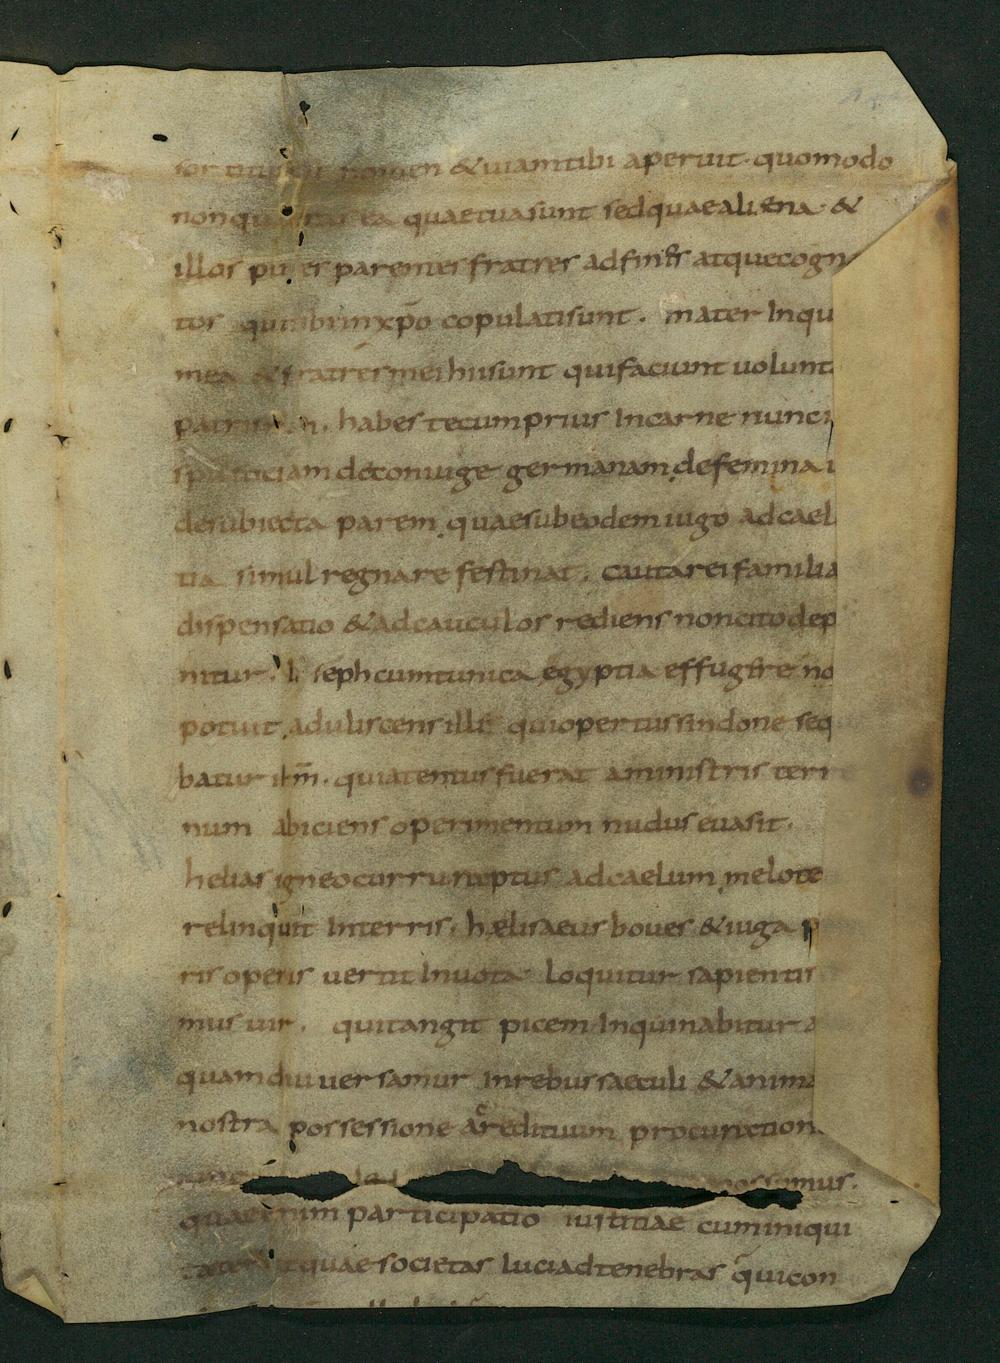 nomen & uiam tibi aperuit. quomodo
non quaeras ea quae tua sunt sed quae aliena &
illos putes parentes fratres adfines atque cogna
tos qui tibi in xp̄o copulati sunt. mater Inqu
mea & fratres mei hii sunt qui faciunt uolunt
habes tecum prius In carne nunc i
spu sociam de coniuge germanam de femina u
de subiecta parem quae sub eodem iugo ad cael
tia simul regna re festinat. cauta rei familia
dispensatio & ad cauculos rediens non cito dep
nitur. Ioseph cum tunica egyptia effugere no
potuit aduliscens ille qui opertus sindone seq
batur ihm̄. quia tentus fuerat a ministris terr
num abiciens operimentum nudus euasit.
helias igneo curru raptus ad caelum melote
relinquit In terris. hælisaeus boues & iuga p
ris operis uertit In uota loquitur sapientis
mus uir. qui tangit picem Inquinabitur a
quamdiu uersamur In rebus saeculi & anima
nostra possessione ac redituum procuration
possumus.
quae enim participatio iustitiae cum iniqui
tate aut quae societas luci ad tenebras qui con